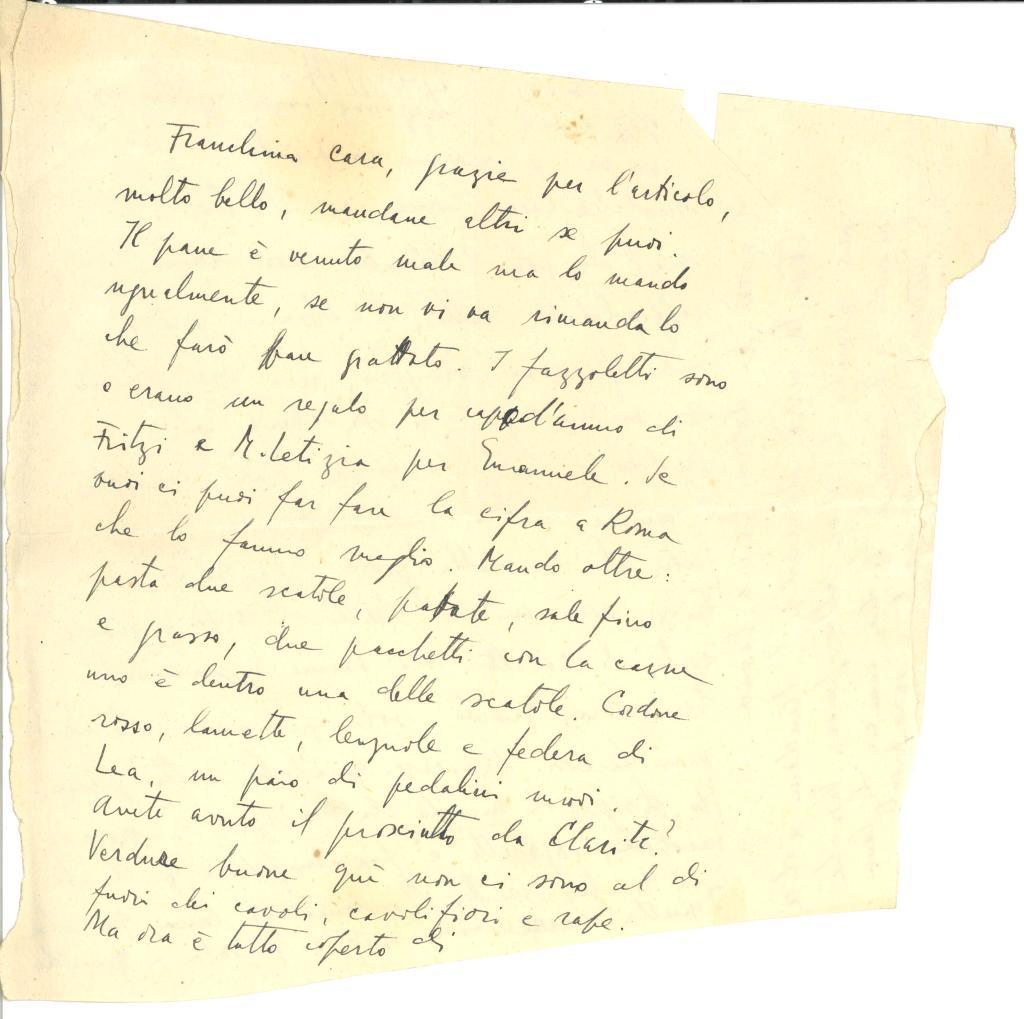 Franchina cara, grazie per l'articolo,
molto bello, mandane altri se puoi.
Il pane è venuto male ma lo mando
ugualmente, se non vi va rimandalo
che farò pan grattato. I fazzoletti sono
o erano un regalo per capod'anno di
Fritzi e M. Letizia per Emanuele. Se
vuoi ci puoi far fare la cifra a Roma
che lo fanno meglio. Mando oltre:
pasta due scatole, patate, sale fino
e grosso, due pacchetti con la carne
uno è dentro una delle scatole. Cordone
rosso, lamette, lenzuole e federa di
Lea, un paio di pedalini nuovi.
Avete avuto il prosciutto da Clarite?
Verdure buone qui non ci sono al di
fuori dei cavoli, cavolifiori e rape.
Ma ora è tutto coperto di